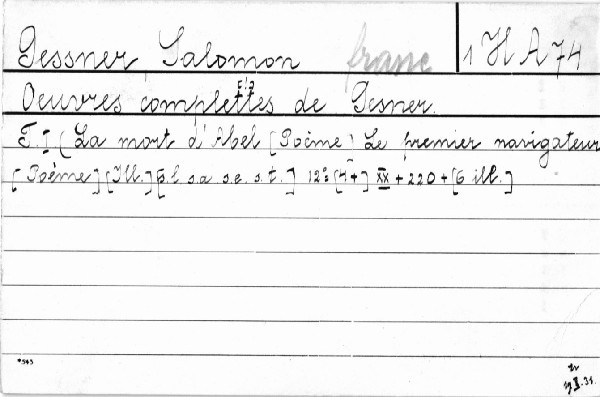 Gessner Salomon franc 1 H A 74
Oeuvres complettes de Gesner.
T. I ( La mort d'Abel [Poème] Le premier navigateur
[Poéme] [Ill.] [S. l. s. a. s. e. s. t.] 12° [4+] XX + 220 + [6 ill.]
*543
II. 31.